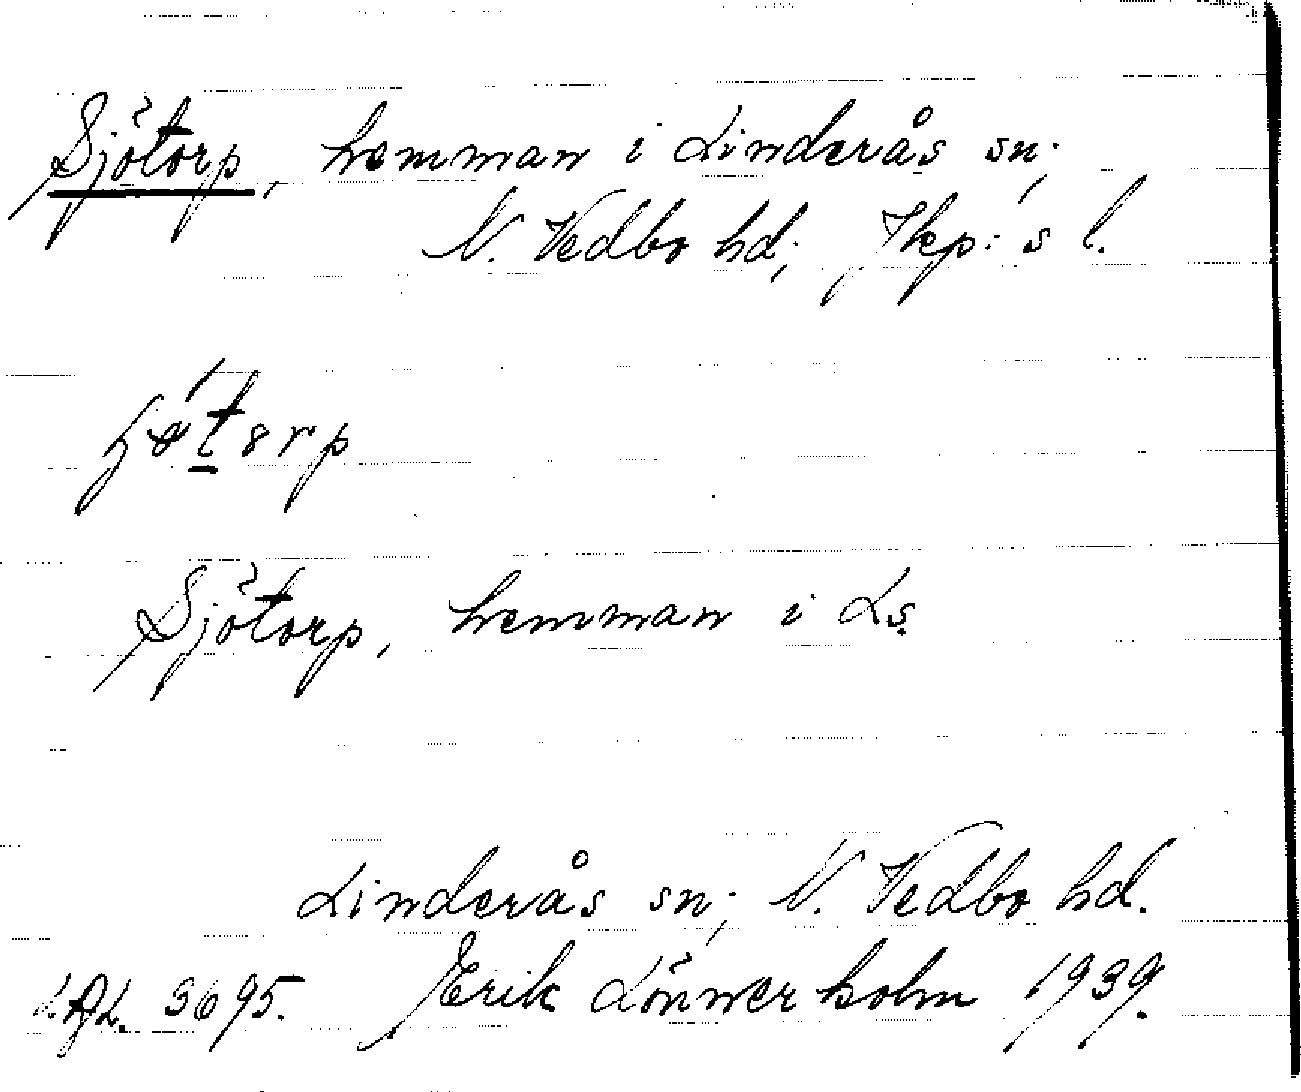 Sjötorp, hemman i Linderås sn,
N. Vedbo hd, Jkp:s l.
Sjötorp, hemman i Ls.
Linderås sn, N. Vedbo hd.
3695. Erik Lönnerholm 1939.